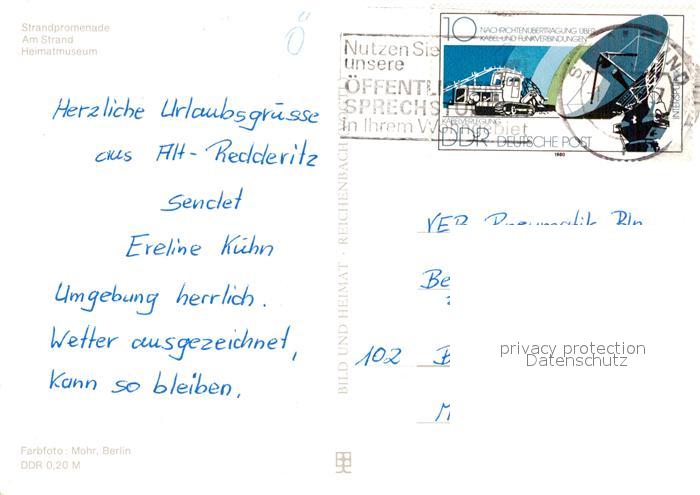 Strandpromenade
Am Strand
Heimatmuseum
Ö
Herzliche Urlaubsgrüsse
aus Alt-Redderitz
Sendet
Ereline Kühn
Umgebung herrlich.
Wetter ausgezeichnet,
Kann so bleiben.
Farbfoto: Mohr, Berlin
DDR 0,20 M
BILD UND HEIMAT · REICHENBACH
Nutzen Sie
unsere
ÖFFENTL
SPRECHST
in Ihrem Wohngebiet
10 NACHRICHTENÜBERTRAGUNG ÜBER
KABEL-UND FUNKVERBINDUNGEN
KABELVERLEGUNG
INTERS
DDR DEUTSCHE POST
1980
VEB Pneumatik Bln
Be
102 B
M
privacy protection
Datenschutz